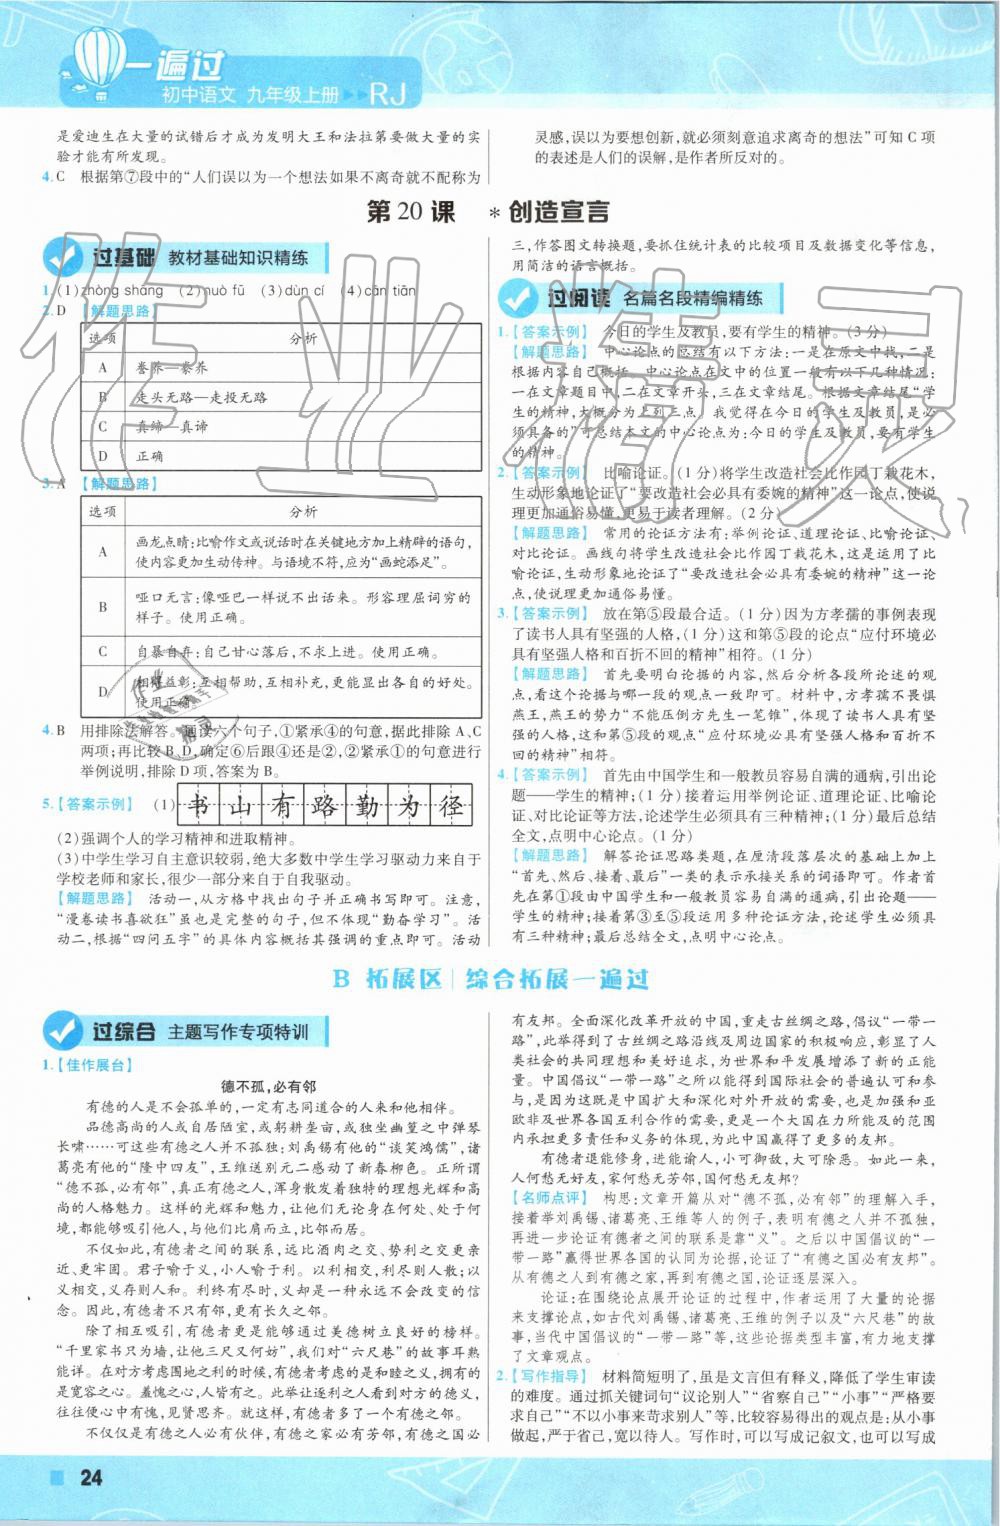 一遍过
初中语文 九年级上册 RJ
是爱迪生在大量的试错后才成为发明大王和法拉第要做大量的实
验才能有所发现。
4.C 根据第⑦段中的“人们误以为一个想法如果不离奇就不配称为
灵感,误以为要想创新,就必须刻意追求离奇的想法”可知C项
的表述是人们的误解,是作者所反对的。
第20课 *创造宣言
过基础 教材基础知识精练
1.(1)zhòng shāng (2)nuò fū (3)dùn cí (4)cān tiān
2.D 【解题思路】
选项 分析
A 誊养—豢养
B 走头无路—走投无路
C 真缔—真谛
D 正确
3.A 【解题思路】
选项 分析
A 画龙点睛:比喻作文或说话时在关键地方加上精辟的语句,
使内容更加生动传神。与语境不符,应为“画蛇添足”。
B 哑口无言:像哑巴一样说不出话来。形容理屈词穷的
样子。使用正确。
C 自暴自弃:自己甘心落后,不求上进。使用正确。
D 相得益彰:互相帮助,互相补充,更能显出各自的好处。
使用正确。
4.B 用排除法解答。通读六个句子,①紧承④的句意,据此排除A、C
两项;再比较B、D,确定⑥后跟④还是②,②紧承①的句意进行
举例说明,排除D项,答案为B。
5.【答案示例】 (1)书山有路勤为径
(2)强调个人的学习精神和进取精神。
(3)中学生学习自主意识较弱,绝大多数中学生学习驱动力来自于
学校老师和家长,很少一部分来自于自我驱动。
【解题思路】 活动一,从方格中找出句子并正确书写即可。注意,
“漫卷读书喜欲狂”虽也是完整的句子,但不体现“勤奋学习”。活
动二,根据“四问五字”的具体内容概括其强调的重点即可。活动
三,作答图文转换题,要抓住统计表的比较项目及数据变化等信息,
用简洁的语言概括。
过阅读 名篇名段精编精练
1.【答案示例】 今日的学生及教员,要有学生的精神。(3分)
【解题思路】 中心论点的总结有以下方法:一是在原文中找,二是
根据内容自己概括。中心论点在文中的位置一般有以下几种情况:
一在文章题目中,二在文章开头,三在文章结尾。根据文章结尾“学
生的精神,大概分为上列三点。我觉得在今日的学生及教员,是必
须具备的”可总结本文的中心论点为:今日的学生及教员,要有学生
的精神。
2.【答案示例】 比喻论证。(1分)将学生改造社会比作园丁栽花木,
生动形象地论证了“要改造社会必具有委婉的精神”这一论点,使说
理更加通俗易懂,更易于读者理解。(2分)
【解题思路】 常用的论证方法有:举例论证、道理论证、比喻论证、
对比论证。画线句将学生改造社会比作园丁栽花木,这是运用了比
喻论证,生动形象地论证了“要改造社会必具有委婉的精神”这一论
点,使说理更加通俗易懂。
3.【答案示例】 放在第⑤段最合适。(1分)因为方孝孺的事例表现
了读书人具有坚强的人格,(1分)这和第⑤段的论点“应付环境必
具有坚强人格和百折不回的精神”相符。(1分)
【解题思路】 首先要明白论据的内容,然后分析各段所论述的观
点,看这个论据与哪一段的观点一致即可。材料中,方孝孺不畏惧
燕王,燕王的势力“不能压倒方先生一笔锥”,体现了读书人具有坚
强的人格,这和第⑤段的观点“应付环境必具有坚强人格和百折不
回的精神”相符。
4.【答案示例】 首先由中国学生和一般教员容易自满的通病,引出论
题——学生的精神;(1分)接着运用举例论证、道理论证、比喻论
证、对比论证等方法,论述学生必须具有三种精神;(1分)最后总结
全文,点明中心论点。(1分)
【解题思路】 解答论证思路类题,在厘清段落层次的基础上加上
“首先、然后、接着、最后”一类的表示承接关系的词语即可。作者首
先在第①段由中国学生和一般教员容易自满的通病,引出论题——
学生的精神;接着第③至⑤段运用多种论证方法,论述学生必须具
有三种精神;最后总结全文,点明中心论点。
B 拓展区 综合拓展一遍过
过综合 主题写作专项特训
1.【佳作展台】
德不孤,必有邻
有德的人是不会孤单的,一定有志同道合的人来和他相伴。
品德高尚的人或自居陋室,或躬耕垄亩,或独坐幽篁之中弹琴
长啸……可这些有德之人并不孤独:刘禹锡有他的“谈笑鸿儒”,诸
葛亮有他的“隆中四友”,王维送别元二感动了新春柳色。正所谓
“德不孤,必有邻”,真正有德之人,浑身散发着独特的理想光辉和高
尚的人格魅力。这样的光辉和魅力,让他们无论身在何处、处于何
境,都能够吸引他人,与他们比肩而立,比邻而居。
不仅如此,有德者之间的联系,远比酒肉之交、势利之交更亲
近、更牢固。君子喻于义,小人喻于利。以利相交,利尽则人散;以
义相交,义存则人和。利终有尽时,义却是一种永恒不会改变的信
念。因此,有德者不但有邻,更有长久之邻。
除了相互吸引,有德者更能够通过美德树立良好的榜样。
“千里家书只为墙,让他三尺又何妨”,我们对“六尺巷”的故事耳熟
能详。在对方考虑围地之利的时候,有德者考虑的是和睦之义,拥有
的是宽容之心。羞愧之心,人皆有之。此举让逐利之人看到对方的德义,
往往心中有愧,见贤思齐。就这样,有德者有了一个又一个的邻。
不仅仅是有德之人必会有伙伴,有德之家必有芳邻,有德之国必
有友邦。全面深化改革开放的中国,重走古丝绸之路,倡议“一带一
路”,此举得到了古丝绸之路沿线及周边国家的积极响应,彰显了人
类社会的共同理想和美好追求,为世界和平发展增添了新的正能
量。中国倡议“一带一路”,之所以能得到国际社会的普遍认可和参
与,是因为这既是中国扩大和深化对外开放的需要,也是加强和亚
欧非及世界各国互利合作的需要,更是一个大国在力所能及的范围
内承担更多责任和义务的体现,为此中国赢得了更多的友邦。
有德者退能修身,进能谕人,小可御敌,大可除恶。如此一来,
人何愁无好友,家何愁无芳邻,国何愁无友邦?
【名师点评】 构思:文章开篇从对“德不孤,必有邻”的理解入手,
接着举刘禹锡、诸葛亮、王维等人的例子,表明有德之人并不孤独,
再进一步论证有德者之间的联系是靠“义”。之后以中国倡议的“一
带一路”赢得世界各国的认同为论据,论证了“有德之国必有友邦”。
从有德之人到有德之家,再到有德之国,论证逐层深入。
论证:在围绕论点展开论证的过程中,作者运用了大量的论据
来支撑论点,如古代刘禹锡、诸葛亮、王维的例子以及“六尺巷”的故
事,当代中国倡议的“一带一路”等,这些论据类型丰富,有力地支撑
了文章观点。
2.【写作指导】 材料简短明了,虽是文言但有释义,降低了学生审读
的难度。通过抓关键词句“议论别人”“省察自己”“小事”“严格要
求自己”“不以小事来苛求别人”等,比较容易得出的观点是:从小事
做起,严于省己,宽以待人。写作时,可以写成记叙文,也可以写成
24
作业精灵